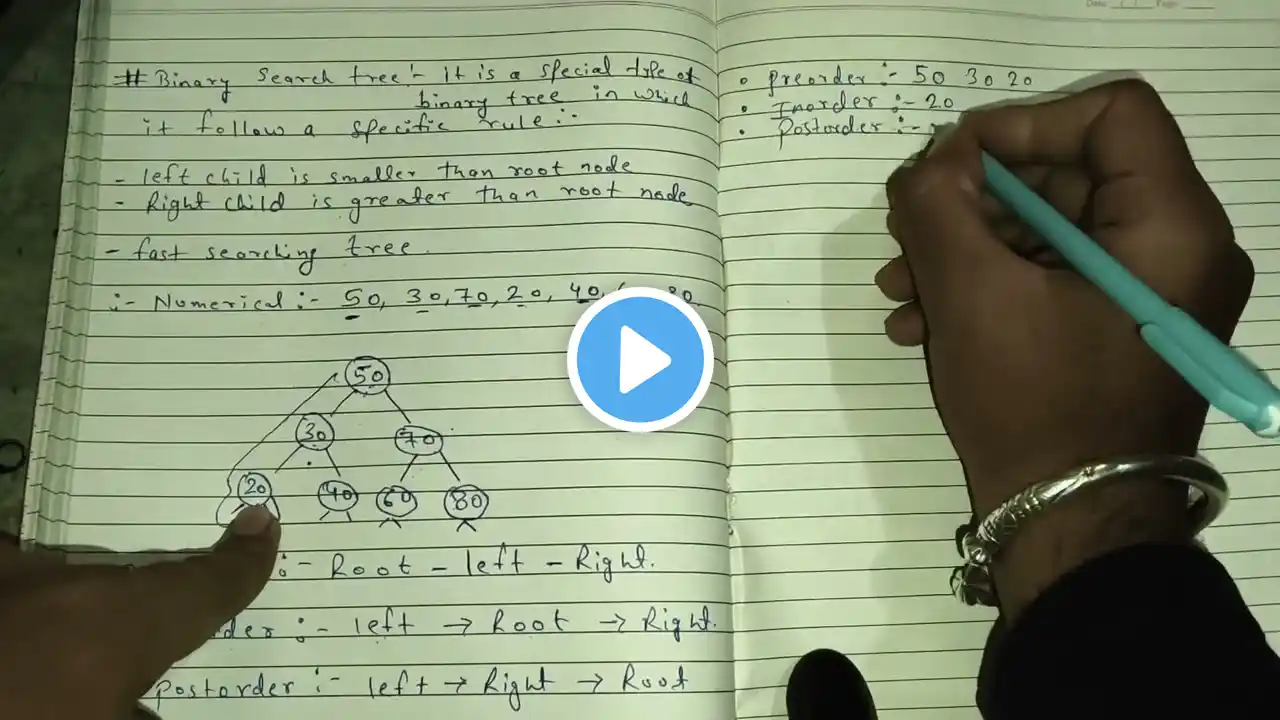 # Binary Search tree :- It is a special type of
binary tree in which
it follow a specific rule :-
- left child is smaller than root node
- Right child is greater than root node
- fast searching tree.
:- Numerical :- 50, 30, 70, 20, 40, 80.
50
30 70
20 40 60 80
:- Root - left - Right.
:- left → Root → Right.
Postorder :- left → Right → Root
Date: Page:
• preorder :- 50 30 20
• Inorder :- 20
• Postorder :-